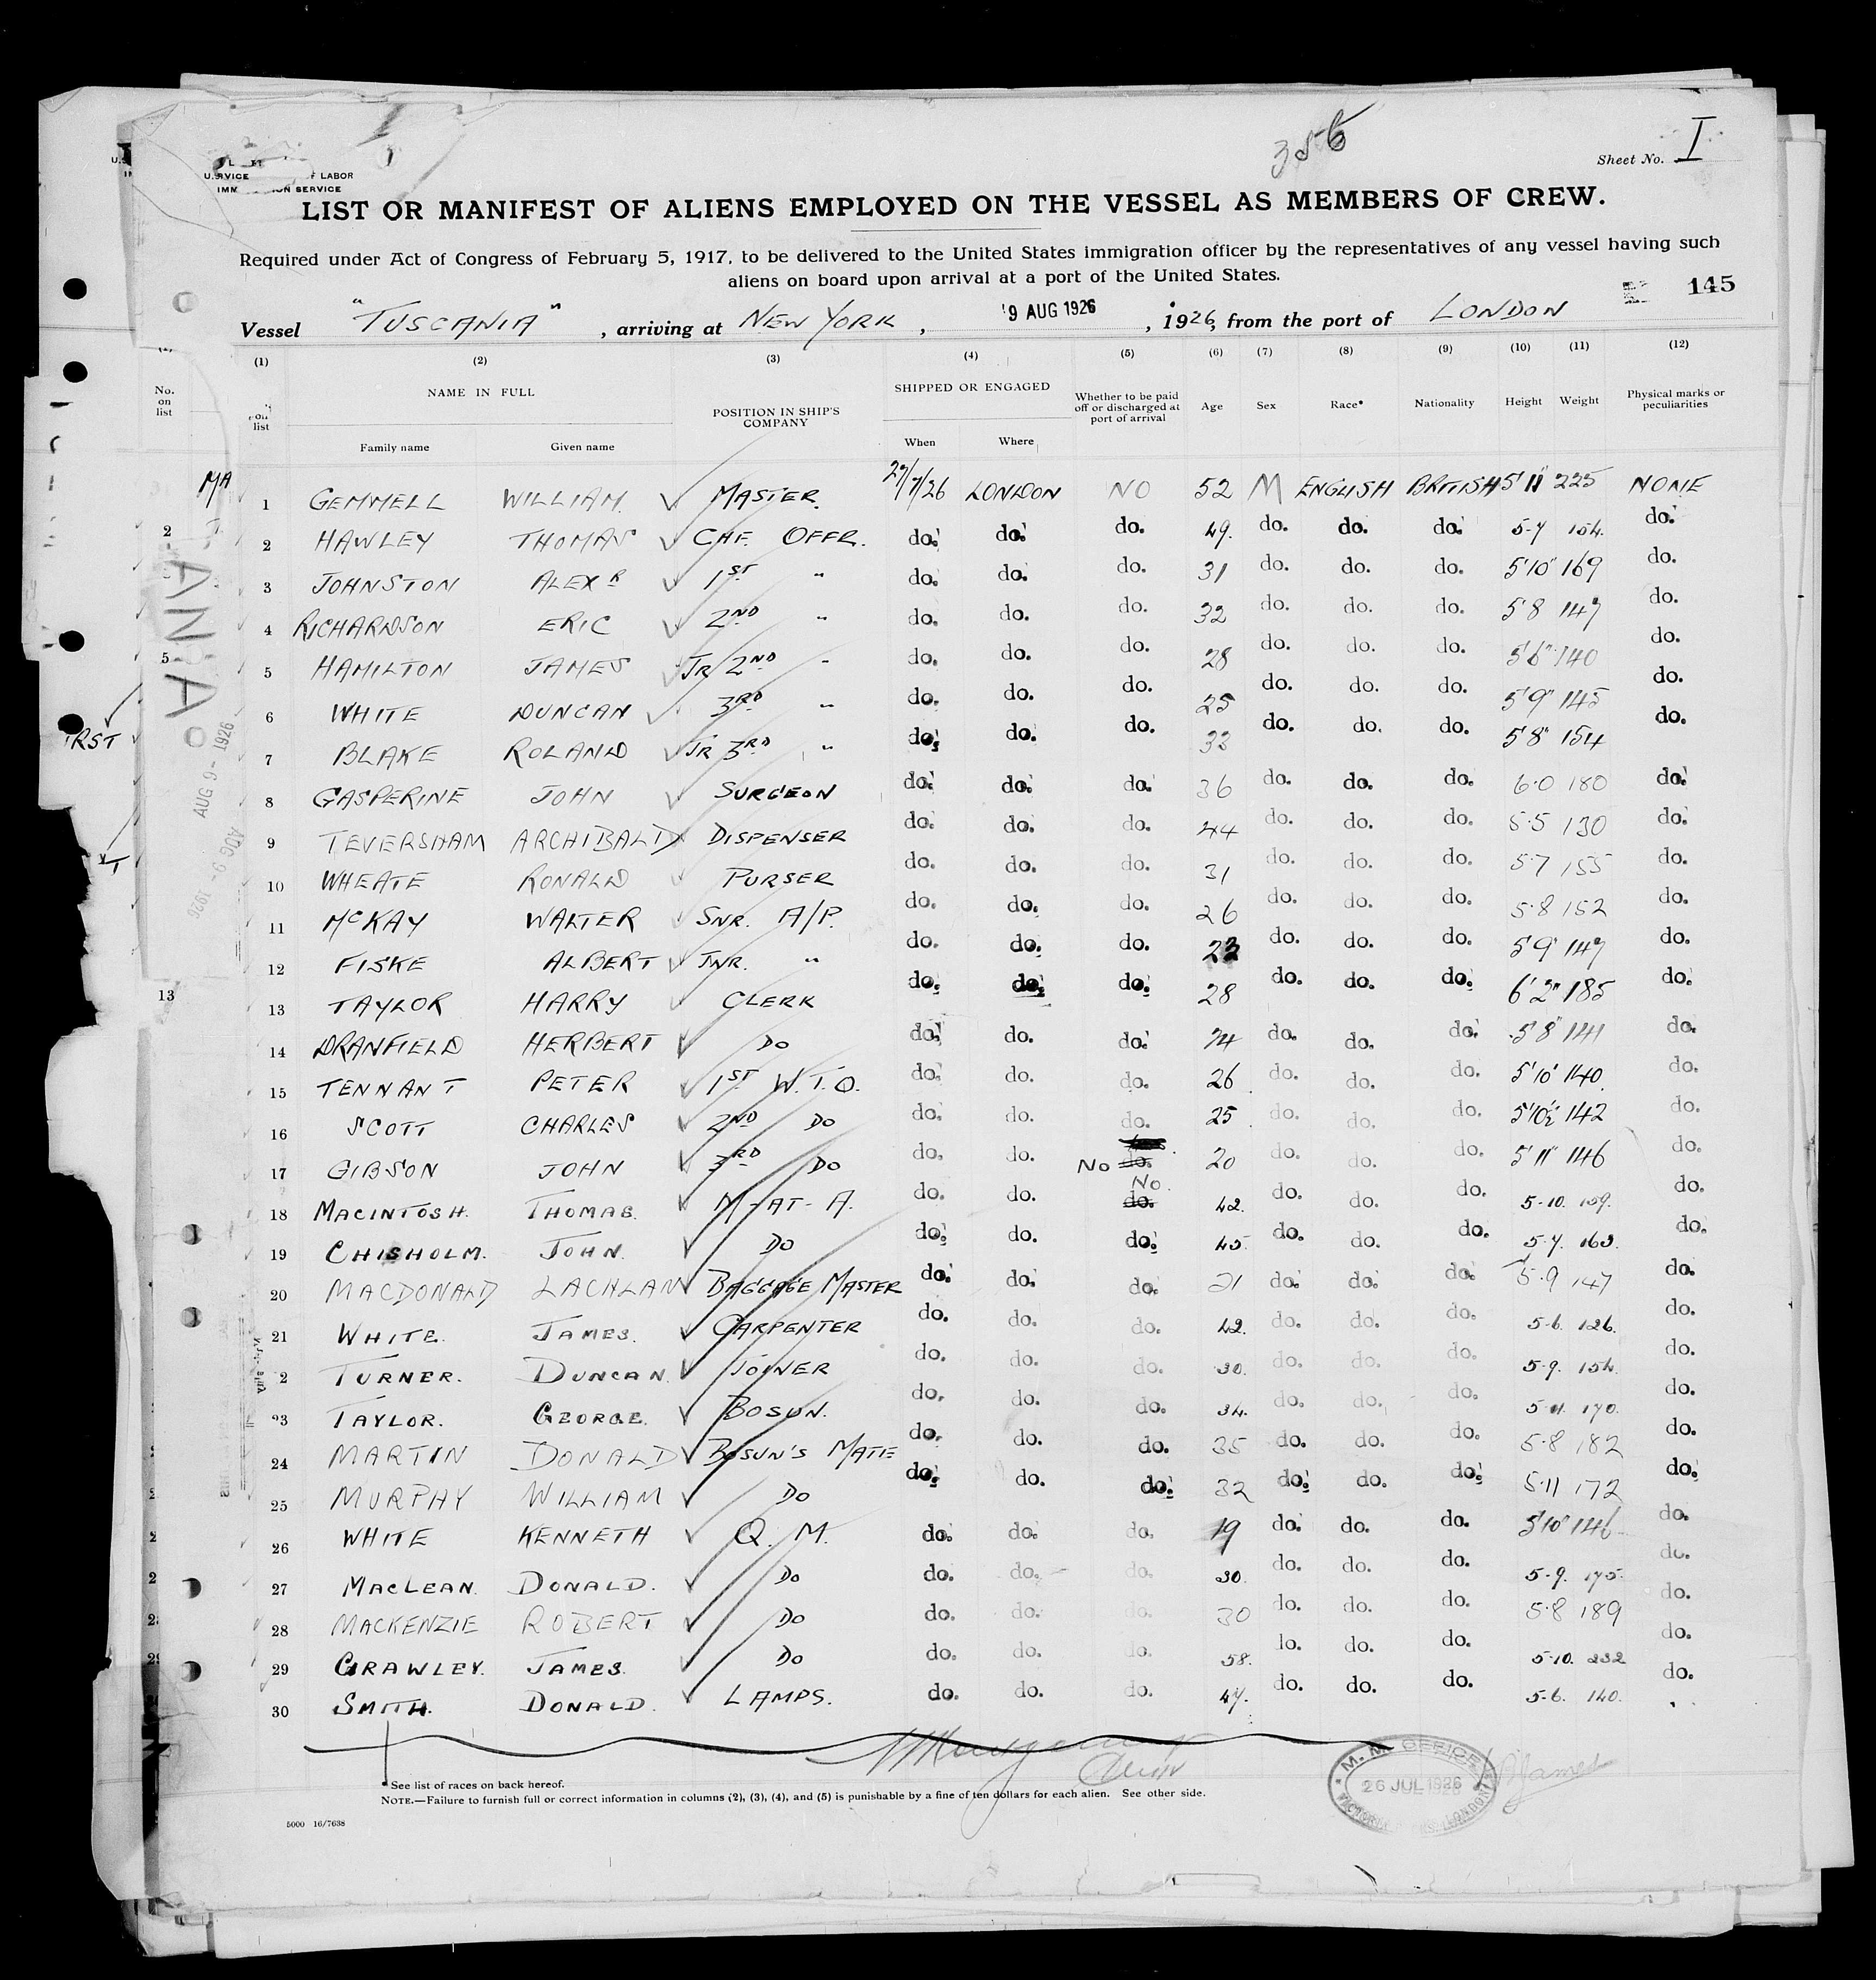 356
Sheet No. I
F LABOR
LIST OR MANIFEST OF ALIENS EMPLOYED ON THE VESSEL AS MEMBERS OF CREW.
Required under Act of Congress of February 5, 1917, to be delivered to the United States immigration officer by the representatives of any vessel having such
aliens on board upon arrival at a port of the United States.
145
Vessel "TUSCANIA", arriving at NEW YORK, 9 AUG 1926, 1926, from the port of LONDON
(1) (2) (3) (4) (5) (6) (7) (8) (9) (10) (11) (12)
No. on list NAME IN FULL POSITION IN SHIP'S COMPANY SHIPPED OR ENGAGED Whether to be paid off or discharged at port of arrival Age Sex Race* Nationality Height Weight Physical marks or peculiarities
Family name Given name When Where
1 GEMMELL WILLIAM. MASTER. 27/7/26 LONDON NO 52 M ENGLISH BRITISH 5'11" 225 NONE
2 HAWLEY THOMAS CHF. OFFR. do. do. do. 49. do. do. do. 5-7 154. do.
3 JOHNSTON ALEXR 1ST " do. do. do. 31 do. do. do. 5'10" 169 do.
4 RICHARDSON ERIC 2ND " do. do. do. 32 do. do. do. 5'8 147 do.
5 HAMILTON JAMES JR 2ND " do. do. do. 28 do. do. do. 5'6" 140 do.
6 WHITE DUNCAN 3RD " do. do. do. 25 do. do. do. 5'9" 145 do.
7 BLAKE ROLAND JR 3RD " do. do. do. 32 do. do. do. 5'8" 154 do.
8 GASPERINE JOHN SURGEON do. do. do. 36 do. do. do. 6.0 180 do.
9 TEVERSHAM ARCHIBALD DISPENSER do. do. do. 44 do. do. do. 5.5 130 do.
10 WHEATE RONALD PURSER do. do. do. 31 do. do. do. 5.7 155 do.
11 McKAY WALTER SNR. A/P. do. do. do. 26 do. do. do. 5.8 152 do.
12 FISKE ALBERT JNR. " do. do. do. 23 do. do. do. 5'9" 147 do.
13 TAYLOR HARRY CLERK do. do. do. 28 do. do. do. 6'2" 185 do.
14 DRANFIELD HERBERT DO do. do. do. 24 do. do. do. 5'8" 141 do.
15 TENNANT PETER 1ST W.T.O. do. do. do. 26 do. do. do. 5'10" 140. do.
16 SCOTT CHARLES 2ND DO do. do. do. 25 do. do. do. 5'10½ 142 do.
17 GIBSON JOHN 3RD DO do. do. No do. 20 do. do. do. 5'11" 146 do.
18 MACINTOSH. THOMAS. M-AT-A. do. do. No. do. 42. do. do. do. 5-10. 159. do.
19 CHISHOLM. JOHN. DO do. do. do. 45. do. do. do. 5-7. 163. do.
20 MACDONALD LACHLAN BAGGAGE MASTER do. do. do. 21 do. do. do. 5.9 147 do.
21 WHITE. JAMES. CARPENTER do. do. do. 42. do. do. do. 5-6. 126. do.
2 TURNER. DUNCAN. JOINER do. do. do. 30. do. do. do. 5-9. 154. do.
23 TAYLOR. GEORGE. BOSUN. do. do. do. 34. do. do. do. 5-11. 170. do.
24 MARTIN DONALD BOSUN'S MATE do. do. do. 35 do. do. do. 5.8 182 do.
25 MURPHY WILLIAM DO do. do. do. 32 do. do. do. 5.11 172 do.
26 WHITE KENNETH Q. M. do. do. do. 19 do. do. do. 5'10" 146 do.
27 MACLEAN. DONALD. DO do. do. do. 30. do. do. do. 5-9. 175. do.
28 MACKENZIE ROBERT DO do. do. do. 30 do. do. do. 5.8 189 do.
29 CRAWLEY. JAMES. DO do. do. do. 58. do. do. do. 5-10. 232 do.
30 SMITH. DONALD. LAMPS. do. do. do. 47. do. do. do. 5-6. 140. do.
M. M. OFFICE
26 JUL 1926
LONDON
James
*See list of races on back hereof.
NOTE.—Failure to furnish full or correct information in columns (2), (3), (4), and (5) is punishable by a fine of ten dollars for each alien. See other side.
5000 16/7638
MA
ANIA
AUG 9 - 1926
AUG 9 - 1926
RST
2
5
13